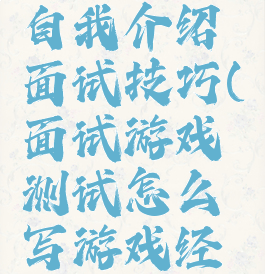 自我介绍
面试技巧(
面试游戏
测试怎么
写游戏经